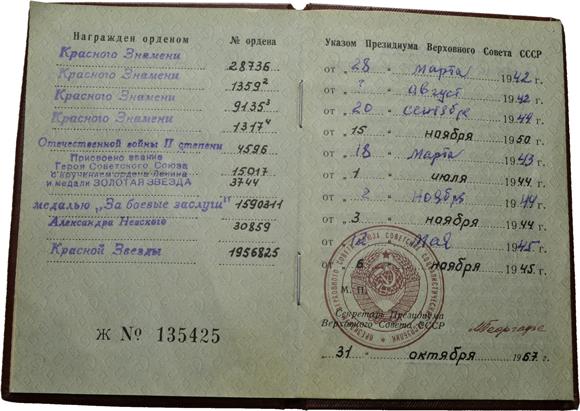 Награжден орденом
№ ордена
Красного Знамени
28736
Красного Знамени
1359²
Красного Знамени
9135³
Красного Знамени
1317⁴
Отечественной войны II степени
4596
Присвоено звание
Героя Советского Союза
с вручением ордена Ленина
15017
и медали ЗОЛОТАЯ ЗВЕЗДА
3744
медалью „За боевые заслуги"
1590311
Александра Невского
30859
Красной Звезды
1956825
Ж № 135425
Указом Президиума Верховного Совета СССР
от „ 28 " марта 1942 г.
от „ ? " август 1942 г.
от „ 20 " сентября 1944 г.
от „ 15 " ноября 1950 г.
от „ 18 " марта 1943 г.
от „ 1 " июля 1944 г.
от „ 2 " ноября 1944 г.
от „ 3 " ноября 1944 г.
от „ " Мая 1945 г.
от „ 6 " ноября 1945 г.
М. П.
Секретарь Президиума
Верховного Совета СССР
„ 31 " октября 1967 г.